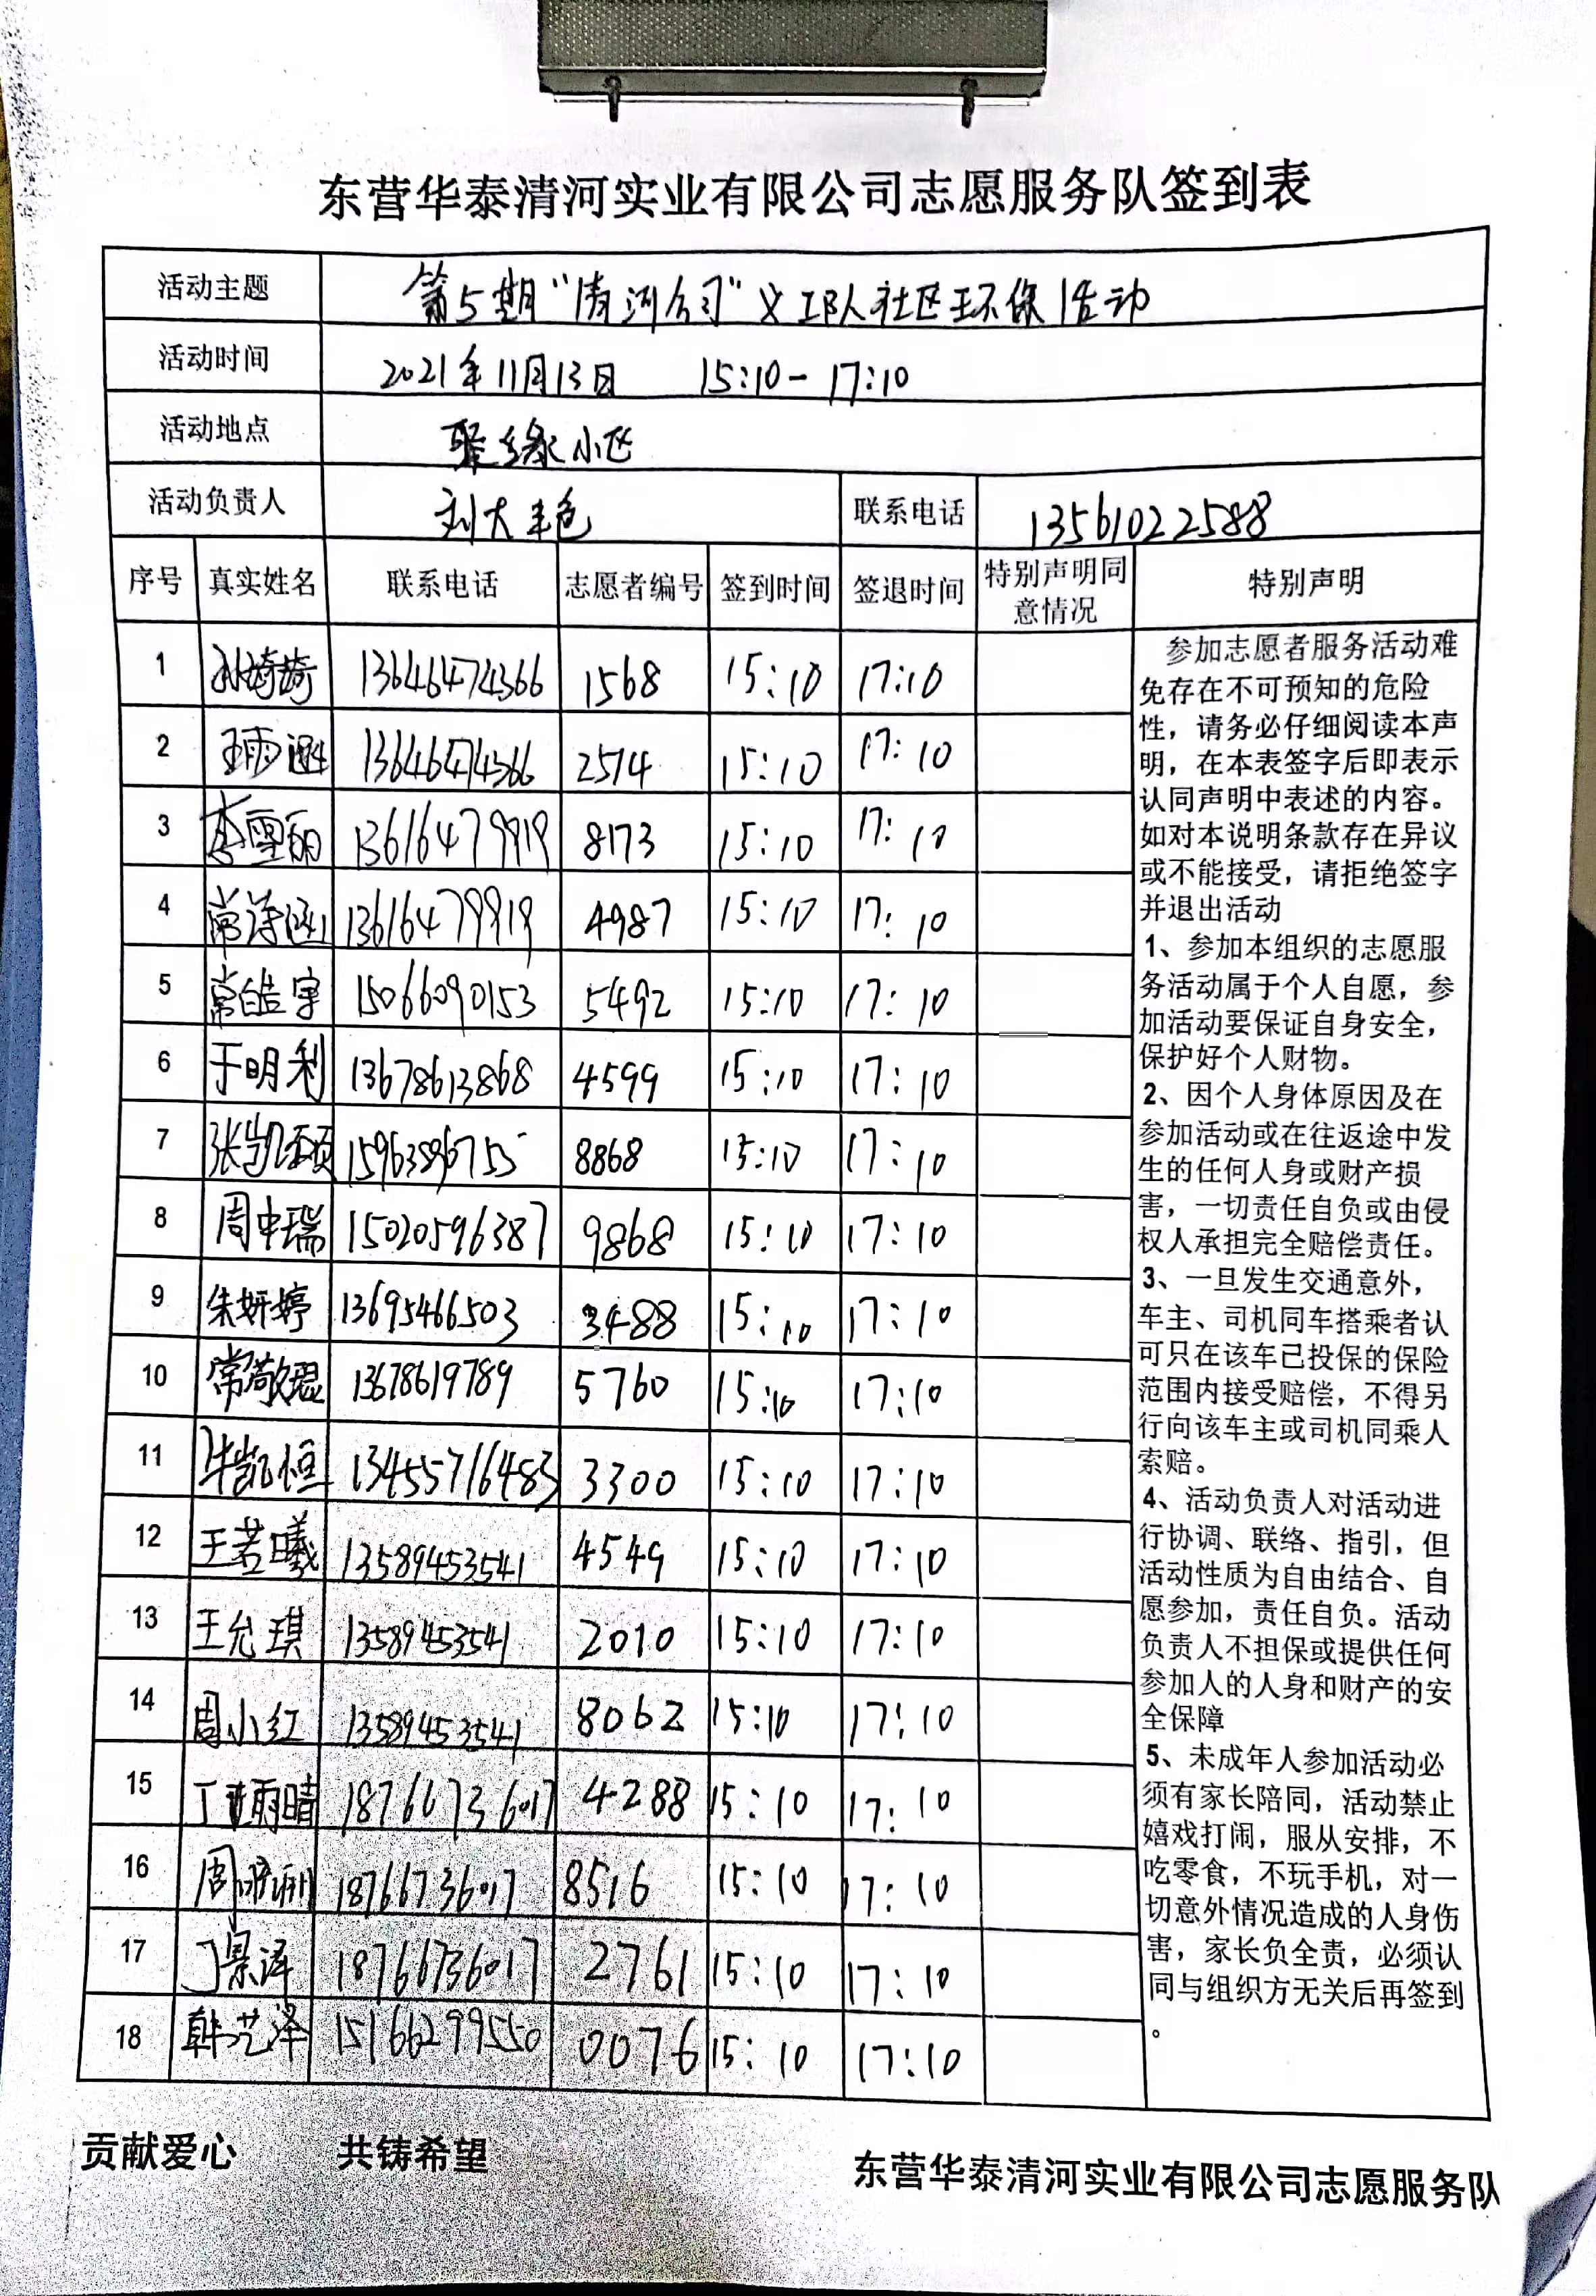 东营华泰清河实业有限公司志愿服务队签到表
活动主题 第5期“清河公司”义工队社区环保活动
活动时间 2021年11月13日 15:10-17:10
活动地点 聚缘小区
活动负责人 刘大艳 联系电话 13561022588
序号 真实姓名 联系电话 志愿者编号 签到时间 签退时间 特别声明同意情况 特别声明
1 孙婷婷 13646474366 1568 15:10 17:10
2 王雨涵 13646474366 2574 15:10 17:10
3 李雪丽 13616479919 8173 15:10 17:10
4 常诗涵 13616479919 4987 15:10 17:10
5 常皓宇 15066090153 5492 15:10 17:10
6 于明利 13678613868 4599 15:10 17:10
7 张凯硕 15963896755 8868 15:10 17:10
8 周申瑞 15020596387 9868 15:10 17:10
9 朱妍婷 13695466503 3488 15:10 17:10
10 常敬琨 13678619789 5760 15:10 17:10
11 牛凯恒 13455716483 3300 15:10 17:10
12 王若曦 13589453541 4549 15:10 17:10
13 王允琪 13589453541 2010 15:10 17:10
14 周小红 13589453541 8062 15:10 17:10
15 丁雨晴 18766736017 4288 15:10 17:10
16 周 18766736017 8516 15:10 17:10
17 丁景泽 18766736017 2761 15:10 17:10
18 韩艺泽 15166299550 0076 15:10 17:10
参加志愿者服务活动难
免存在不可预知的危险
性，请务必仔细阅读本声
明，在本表签字后即表示
认同声明中表述的内容。
如对本说明条款存在异议
或不能接受，请拒绝签字
并退出活动
1、参加本组织的志愿服
务活动属于个人自愿，参
加活动要保证自身安全，
保护好个人财物。
2、因个人身体原因及在
参加活动或在往返途中发
生的任何人身或财产损
害，一切责任自负或由侵
权人承担完全赔偿责任。
3、一旦发生交通意外，
车主、司机同车搭乘者认
可只在该车已投保的保险
范围内接受赔偿，不得另
行向该车主或司机同乘人
索赔。
4、活动负责人对活动进
行协调、联络、指引，但
活动性质为自由结合、自
愿参加，责任自负。活动
负责人不担保或提供任何
参加人的人身和财产的安
全保障
5、未成年人参加活动必
须有家长陪同，活动禁止
嬉戏打闹，服从安排，不
吃零食，不玩手机，对一
切意外情况造成的人身伤
害，家长负全责，必须认
同与组织方无关后再签到
。
贡献爱心 共铸希望 东营华泰清河实业有限公司志愿服务队